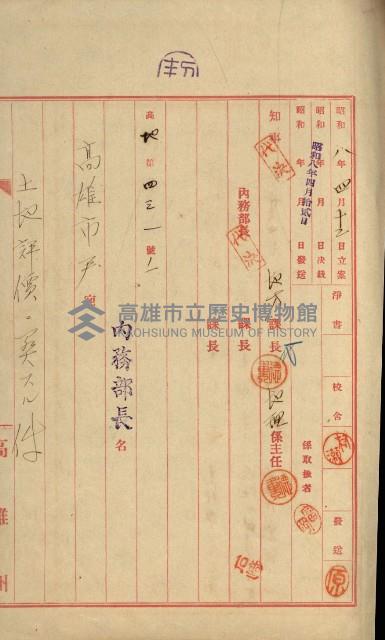 昭和八年四月十二日立案
淨書
校合
發送
昭和 年 月 日決裁
昭和八年四月拾貳日
昭和 年 月 日發送
係取扱者
知事
代決
地方課長
地理係主任
內務部長
代決
課長
課長
高地第四三一號ノ一
內務部長名
高雄市尹宛
土地評價ニ關スル件
高雄州
原
高雄市立歷史博物館
KAOHSIUNG MUSEUM OF HISTORY